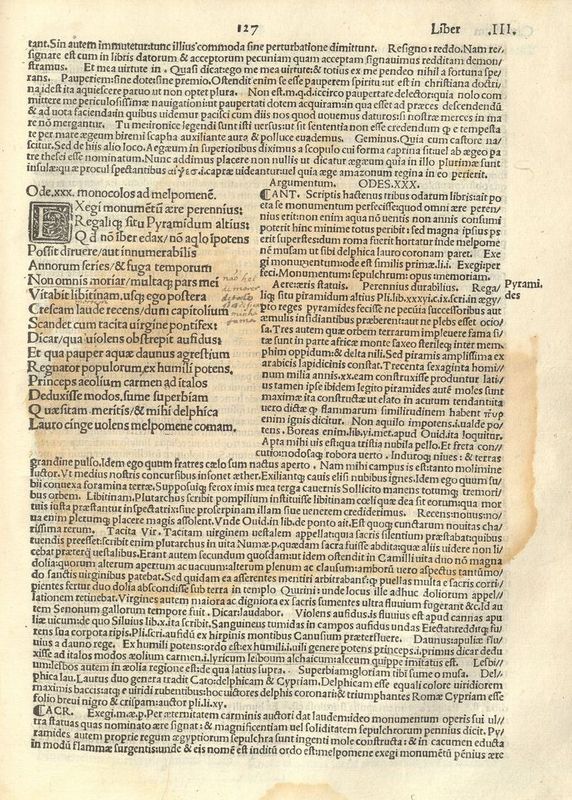 127 Liber .III.
tant. Sin autem immutetur: tunc illius commoda sine perturbatione dimittunt. Resigno: reddo. Nam re/
signare est cum in libris datorum & acceptorum pecuniam quam acceptam signauimus redditam demon/
stramus. Et mea virtute in. Quasi dicat: ego me mea virtute: & totius ex me pendeo nihil a fortuna spe/
rans. Pauperiem: sine dote: sine premio. Ostendit enim se esse pauperem spiritu: aut est in christiana doctri/
na id est ita aquiescere paruo ut non optet plura. Non est.m.q.d. iccirco aut paupertate delector: quia nolo com
mittere me periculosissimæ nauigationi: aut paupertati dotem acquiram: in qua esset ad præces descendendū
& ad uota faciendain quibus uidemur pacisci cum diis nos quod uouemus daturos: si nostræ merces in ma
re nō mergantur. Tu me ironice legendi sunt isti uersus: aut sit sententia non esse credendum
te per mare ægeum biremi scapha auxiliante aura & polluce euademus. Geminus. Quia cum castore na/
scitur. Sed de hiis alio loco. Aegæum in superioribus diximus a scopulo cui forma caprina situ: uel ab ægeo pa
tre thesei esse nominatum. Nunc addimus placere non nullis ut dicatur ægæum quia in illo plurimæ sunt
insulæ: quæ procul spectantibus .i. capræ uideantur: uel quia ægæ amazonum regina in eo perierit.
Ode.xxx. monocolos ad melpomenē.
EXegi monumētū ære perennius:
Regaliq; situ Pyramidum altius:
Qd nō īber edax/ nō aqlo īpotens
Possit diruere/ aut innumerabilis
Annorum series/ & fuga temporum
Non omnis moriar/ multaq; pars mei
Vitabit libitinam, usq; ego postera
Crescam laude recens/ dum capitolium
Scandet cum tacita uirgine pontifex:
Dicar/ qua uiolens obstrepit aufidus:
Et qua pauper aquæ daunus agrestium
Regnator populorum, ex humili potens.
Princeps æolium carmen ad italos
Deduxisse modos. sume superbiam
Quæsitam meritis/ & mihi delphica
Lauro cinge uolens melpomene comam.
Argumentum. ODES.XXX.
CANT. Scriptis hactenus tribus odarum libris: ait po
eta se monumentum perfecisse: quod omni ære peren/
nius erit: non enim aqua nō uentis non annis consumi
poterit hinc minime totus peribit: sed magna ipsius ps
erit superstes: dum roma fuerit hortatur inde melpome
nē musam ut sibi delphica lauro coronam paret. Exe
gi monumentum: ode est similis primæ.li.i. Exegi: per
feci. Monumentum: sepulchrum: opus memoriam.
Aere: æris statuis. Perennius durabilius. Rega/
liq; situ piramidum altius Pli.lib.xxxvi.c.ix. scri. in ægy/
pto reges pyramides fecisse ne pecunia successoribus aut
æmulis insidiantibus præberent: aut ne plebs esset ocio/
sa. Tres autem quæ orbem terrarum impleuere fama si/
tæ sunt in parte africæ monte saxeo sterileq; inter mem
phim oppidum: & delta nili. Sed piramis amplissima ex
arabicis lapidicinis constat. Trecenta sexaginta homi/
num milia annis.xx. eam construxisse produntur lati/
us tamen ipse ibidem legito piramides autē moles sunt
maximæ ita constructæ ut elato in acutum tendantur
uero dictæ q flammarum similitudinem habent
enim ignis dicitur. Non aquilo impotens. i. ualde po/
tens. Boreas enim. lib.vi.met. apud Ouid. ita loquitur.
Apta mihi uis est: qua tristia nubila pello. Et freta con/
cutio: nodosaq; robora uerto. Induroq; niues: & terras
Pyrami.
des
grandine pulso. Idem ego quum fratres cælo sum nactus aperto. Nam mihi campus is est: tanto molimine
luctor. Vt medius nostris concursibus insonet æther. Exiliantq; cauis elisi nubibus ignes. Idem ego quum su/
bii conuexa foramina terræ. Supposuiq; ferox imis mea terga cauernis Sollicito manes totumq; tremori/
bus orbem. Libitinam. Plutarchus scribit pompilium instituisse libitinam coeli quæ dea sit eorum: qua mor
tuis iusta præstantur inspectatrix: siue proserpinam illam siue uenerem crediderimus. Recens: nouus: no/
ua enim plerumq; placere magis assolent. Vnde Ouid. in lib. de ponto ait. Est quoq; cunctarum nouitas cha/
rissima rerum. Tacita Vir. Tacitam uirginem uestalem appellat: quia sacris silentium præstabat: quibus
tuendis preesset: scribit enim plutarchus in uita Numæ.p. quædam sacra fuisse abdita: quæ aliis uidere non li/
cebat præterq uestalibus. Erant autem secundum quosdam: ut idem ostendit in Camilli uita duo nō magna
dolia: quorum alterum apertum ac uacuum: alterum plenum ac clausum: amborū uero aspectus tantūmo/
do sanctis uirginibus patebat. Sed quidam ea asserentes mentiri arbitrabant: q puellas multa e sacris corri/
pientes fictur duo dolia abscondisse sub terra in templo Quirini: unde locus ille adhuc doliorum appel/
lationem retinebat. Virgines autem maiora ac digniora ex sacris sumentes ultra fluuium fugerant &c. Id au
tem Senonum gallorum tempore fuit. Dicar: laudabor. Violens aufidus. is fluuius est apud cannas apu
liæ uicum: de quo Silius lib.x. ita scribit. Sanguineus tumidas in campos aufidus undas Eiectat: redditq; fu/
rens sua corpora ripis. Pli. scri. aufidū ex hirpinis montibus Canusium præterfluere. Daunus: apuliæ flu/
uius a dauno rege. Ex humili potens: ordo est: ex humili. i. uili genere potens princeps. i. primus dicar dedu
xisse ad italos modos æolium carmen. i. lyricum lesboum alchaicum: alceum quippe imitatus est. Lesbii/
um: lesbos autem in æolia regione est: de qua latius supra. Superbiam: gloriam tibi sume o musa. Del/
phica lau. Lautus duo genera tradit Cato: delphicam & Cypriam. Delphicam esse equali colore uiridiorem
maximis baccis: atq; e uiridi rubentibus: hoc uictores delphis coronari: & triumphantes Romæ Cypriam esse
folio breui nigro & crispam: auctor pli.li.xv.
ACR. Exegi.m.æ.p. Per æternitatem carminis auctori dat laudem: ideo monumentum operis sui ul/
tra statuas quas nominato ære signat: & magnificentiam uel soliditatem sepulchrorum pennius dicit. Py/
ramides autem proprie regum ægyptiorum sepulchra sunt ingenti mole constructa: & in cacumen educta
in modū flammæ surgentis: unde & eis nomē est inditū ordo est: melpomene exegi monumētū pēnius ære